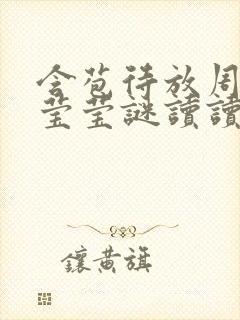 含苞待放周
莹莹謎讀讀
鑲黃旗